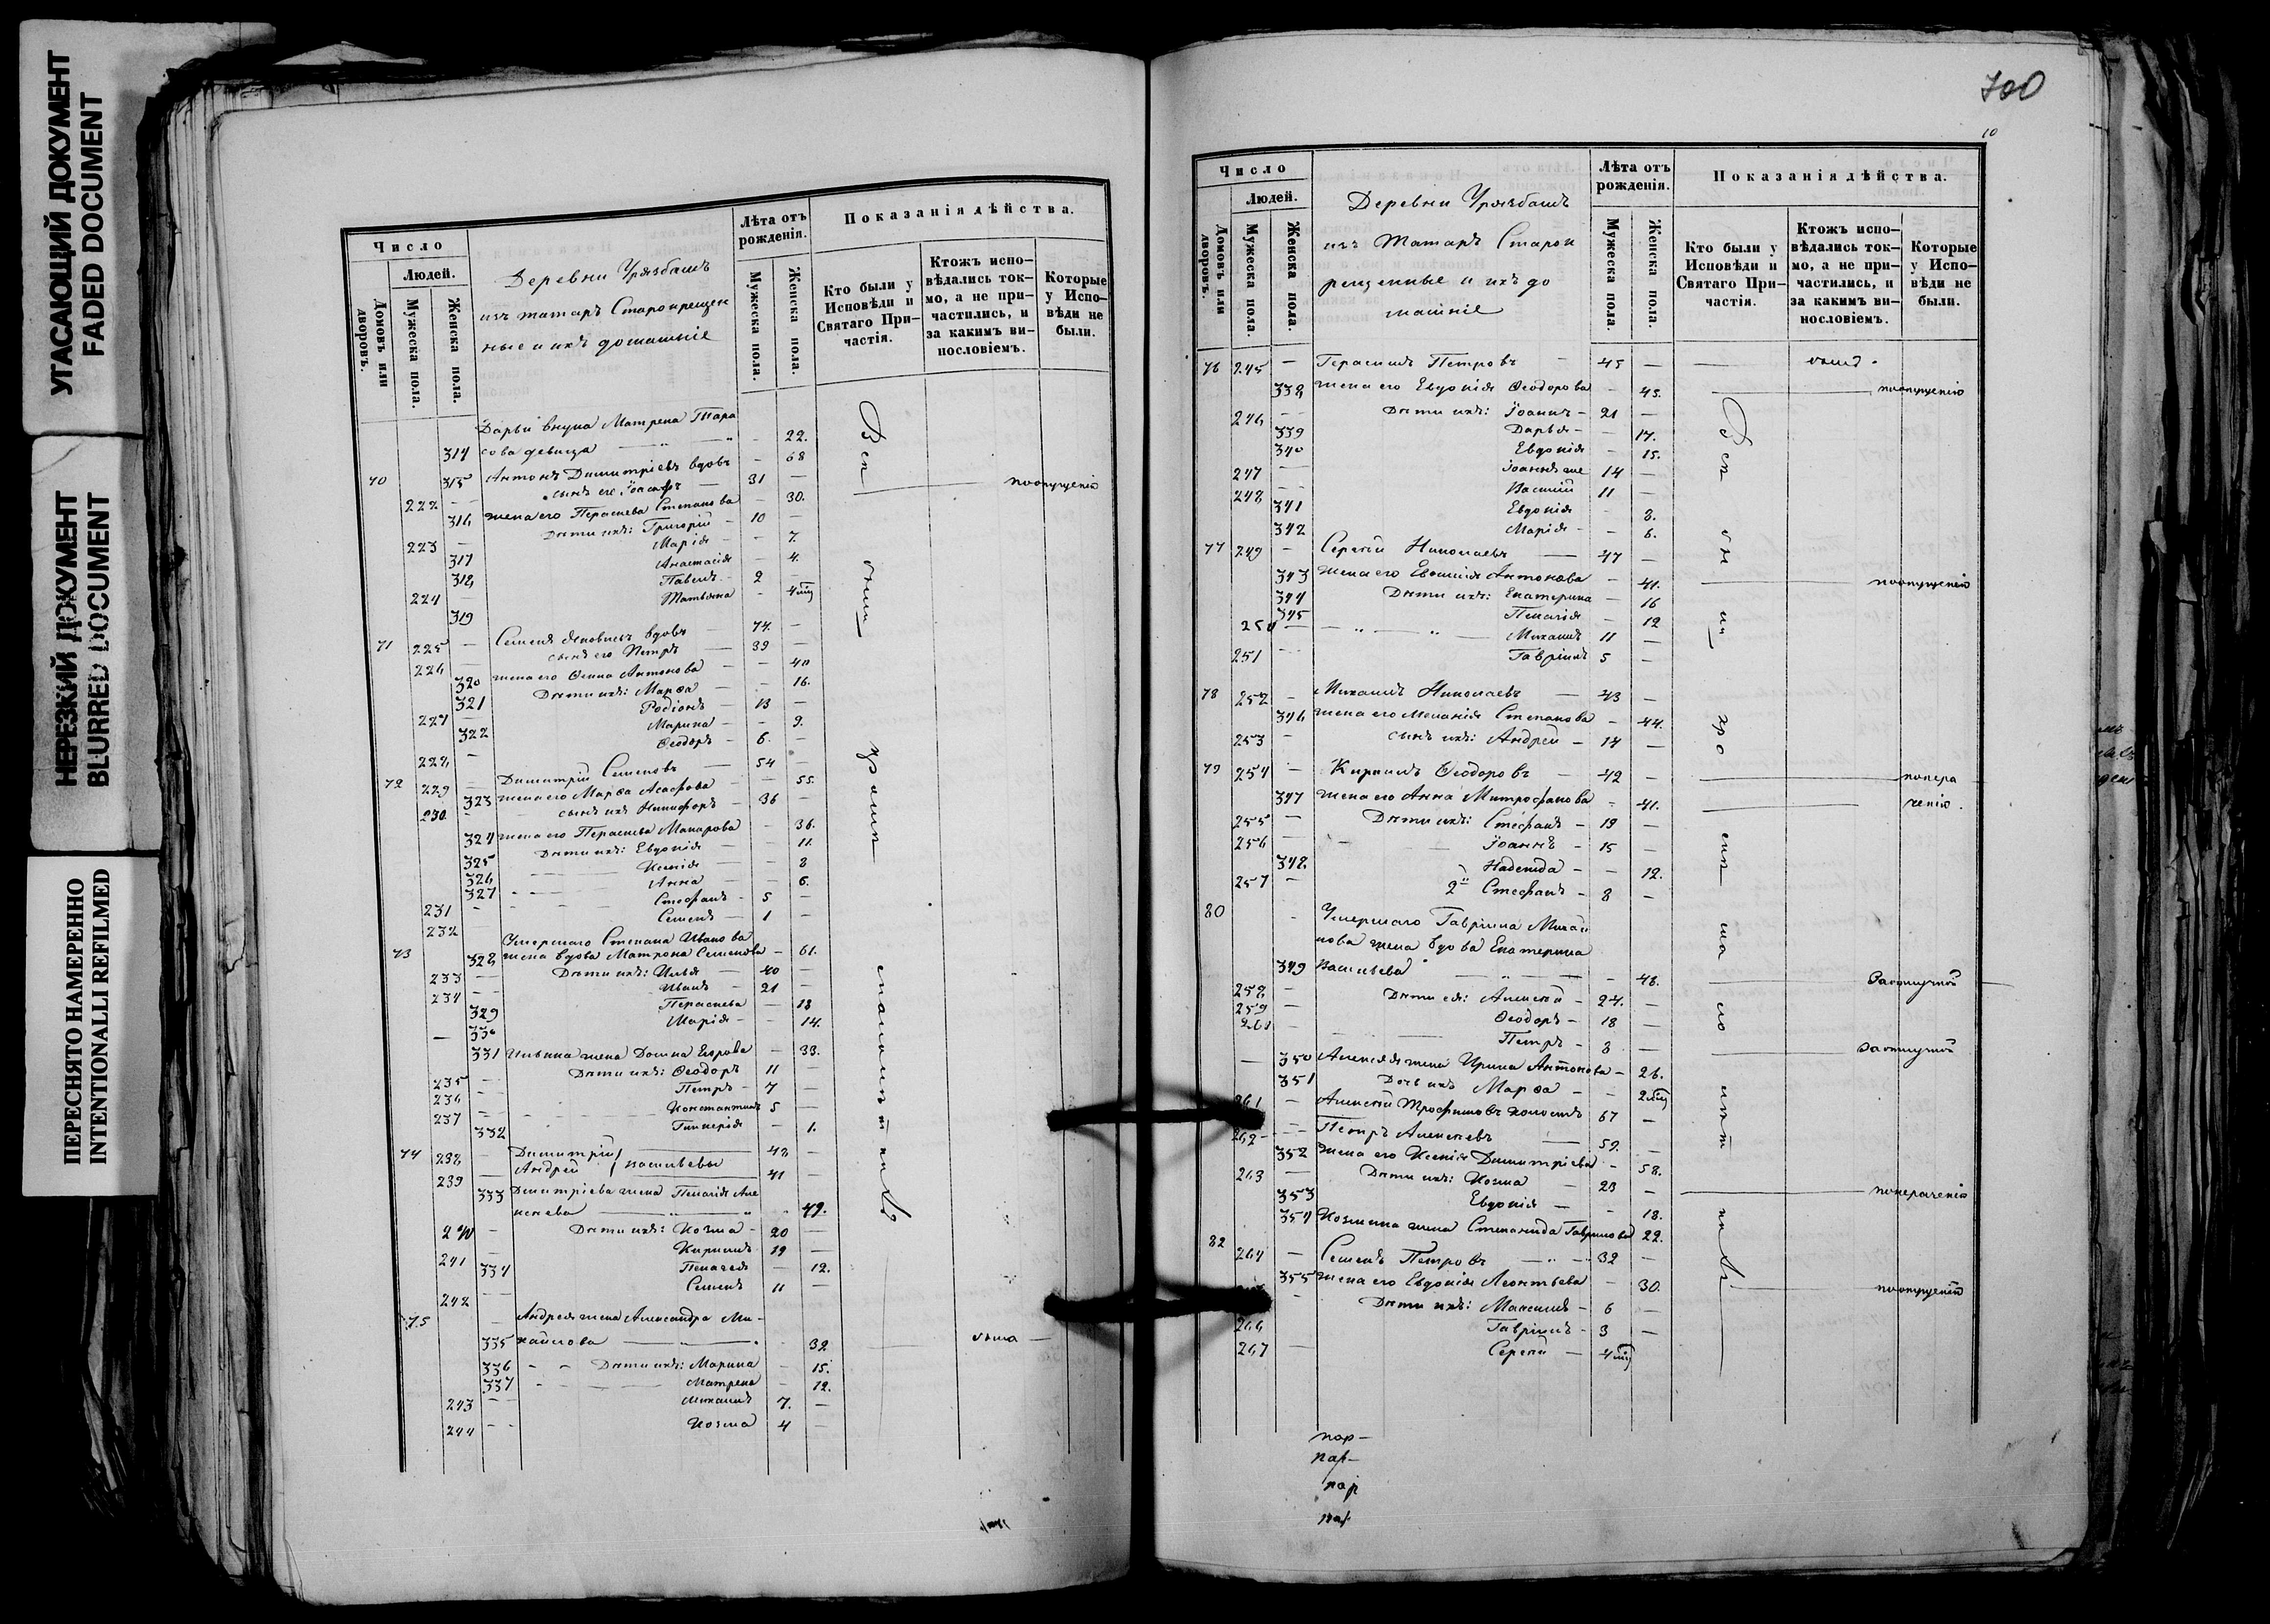 УГАСАЮЩИЙ ДОКУМЕНТ
FADED DOCUMENT
НЕРЕЗКИЙ ДОКУМЕНТ
BLURRED DOCUMENT
ПЕРЕСНЯТО НАМЕРЕННО
INTENTIONALLI REFILMED
Число
Людей.
Домовъ или дворовъ.
Мужеска пола.
Женска пола.
Деревни Урязбашъ
изъ татаръ Старокрещен
ные и ихъ домашніе
Лѣта отъ рожденія.
Мужеска пола.
Женска пола.
Показанія дѣйства.
Кто были у Исповѣди и Святаго Причастія.
Ктожъ исповѣдались токмо, а не причастились, и за какимъ винословіемъ.
Которые у Исповѣди не были.
Дарьи внука Матрена Тара
314 сова девица 22.
70 315 Антонъ Димитріевъ вдовъ 68
222 сынъ его 31 поопущенію
316 жена его Параскева Степанова 30.
223 Дѣти ихъ: Григорій 10
317 Марія 7.
318 Анастасія 4.
224 Павелъ 2
319 Татьяна 4
71 225 Семенъ вдовъ 74.
226 сынъ его Петръ 39
320 жена его Антонова 40
321 Дѣти ихъ: Марѳа 16.
227 Родіонъ 13
322 Марина 9.
228 Ѳеодоръ 6.
72 229 Димитрій Семеновъ 54
323 жена его Марѳа 55.
230 сынъ ихъ Никифоръ 36
324 жена его Параскева Макарова 36.
325 Дѣти ихъ: Евдокія 11.
326 Ксенія 8
327 Анна 6.
231 Стефанъ 5
232 Семенъ 1
73 Умершаго Степана Иванова
328 жена вдова Матрона Семенова 61.
233 Дѣти ихъ: Илья 40
234 Иванъ 21
329 Параскева 18
330 Марія 14.
331 Ильина жена Домна Егорова 33.
235 Дѣти ихъ: Ѳеодоръ 11
236 Петръ 7
237 Константинъ 5
332 Гликерія 1.
74 238 Димитрій 48
239 Андрей Васильевы 41
333 Димитріева жена Пелагія Але
ксеева 49.
240 Дѣти ихъ: Козма 20
241 Кирилъ 19
334 Пелагея 12.
242 Семенъ 11
75 Андрея жена Александра Ми-
335 хайлова 32 была
336 Дѣти ихъ: Марина 15.
337 Матрена 12.
243 Михаилъ 7.
244 Козма 4
Вси
700
10
Число
Людей.
Домовъ или дворовъ.
Мужеска пола.
Женска пола.
Деревни Урязбашъ
изъ Татаръ Старок
рещенные и ихъ до
машніе
Лѣта отъ рожденія.
Мужеска пола.
Женска пола.
Показанія дѣйства.
Кто были у Исповѣди и Святаго Причастія.
Ктожъ исповѣдались токмо, а не причастились, и за какимъ винословіемъ.
Которые у Исповѣди не были.
76 245 Герасимъ Петровъ 45 былъ
338 жена его Евдокія Ѳеодорова 45. поопущенію
246 Дѣти ихъ: Іоаннъ 21
339 Дарья 17.
340 Евдокія 15.
247 Іоаннъ же 14
248 Василій 11
341 Евдокія 8.
342 Марія 6.
77 249 Сергѣй Николаевъ 47
343 жена его Антонова 41. поопущенію
344 Дѣти ихъ: Екатерина 16
345 Пелагія 12
250 Михаилъ 11
251 Гаврилъ 5
78 252 Михаилъ Николаевъ 43
346 жена его Меланія Степанова 44.
253 сынъ ихъ: Андрей 14
79 254 Кирилъ Ѳеодоровъ 42 понера
347 жена его Анна Митрофанова 41. ченію.
255 Дѣти ихъ: Стефанъ 19
256 Іоаннъ 15
348 Надежда 12.
257 2й Стефанъ 8
80 Умершаго Гаврила Михай
лова жена вдова Екатерина
349 Васильева 48. Заотлучкой
258 Дѣти ея: Алексѣй 24.
259 Ѳеодоръ 18
260 Петръ 8 заотлучкой
350 Алексѣя жена Ирина Антонова 26.
351 Дочь ихъ Марѳа 2
261 Алексѣй Трофимовъ холостъ 67
262 Петръ Алексѣевъ 59.
352 жена его Ксенія Димитріева 58.
263 Дѣти ихъ: Козма 23 понераченію
353 Евдокія 18.
354 Козмина жена Степанида Гаврилова 22.
82 264 Семенъ Петровъ 32
355 жена его Евдокія Леонтьева 30. поопущенію
Дѣти ихъ: Максимъ 6
266 Гаврилъ 3
267 Сергѣй 4
Вси